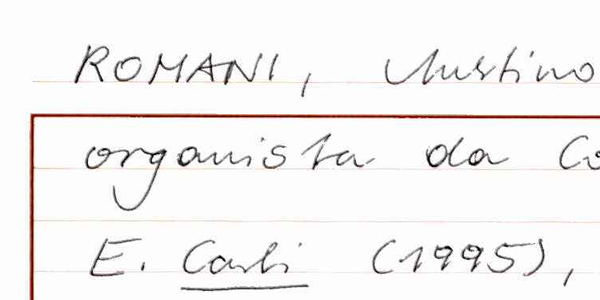 ROMANI, Austino
organista da Co
E. Carli (1995),